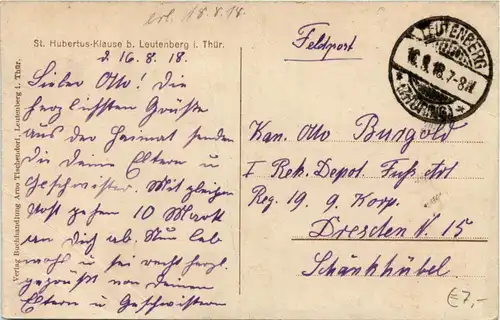 erh. 18.8.18.
St. Hubertus-Klause b. Leutenberg i. Thür.
d. 16.8.18
Lieber Otto! Die
herzlichsten Grüße
aus der Heimat senden
dir deine Eltern u
Geschwister. Mit gleicher
Post gehen 10 Mark
an dich ab. Nun leb
wohl u sei recht herzl.
gegrüßt von deinen
Eltern u Geschwistern
Verlag Buchhandlung Arno Tischendorf, Leutenberg i. Thür.
Feldpost
LEUTENBERG
16.8.18.7-8N.
* (THÜRING) *
Kan. Otto Burgold
I Rek. Depot. Fuß Art
Reg. 19. 9. Korp.
Dresden N. 15
Schänkhübel
€7,-